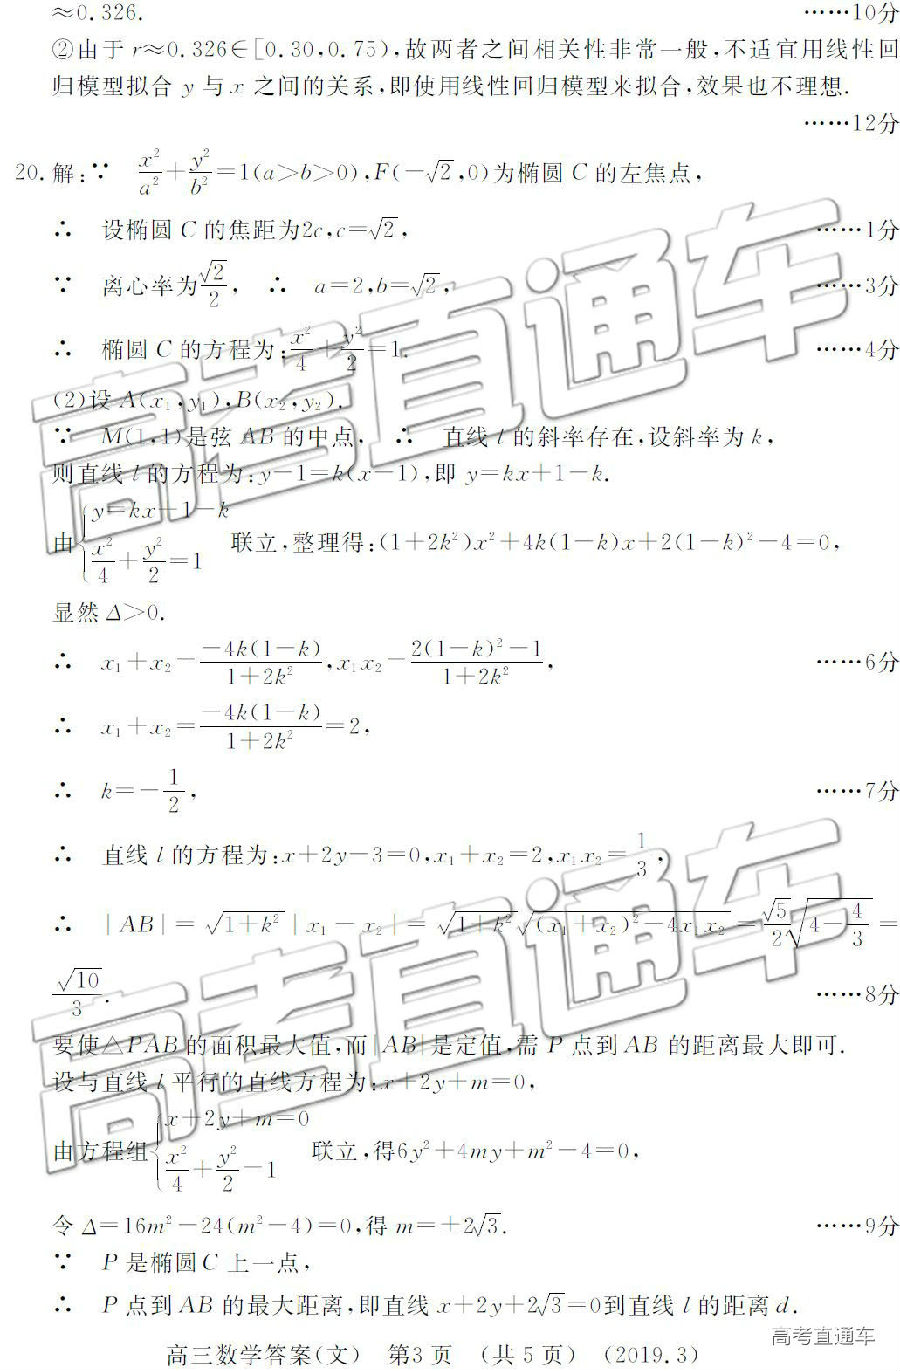 ≈0.326.　……10分
②由于 r≈0.326∈[0.30,0.75),故两者之间相关性非常一般,不适宜用线性回
归模型拟合 y 与 x 之间的关系,即使用线性回归模型来拟合,效果也不理想.
……12分
20.解:∵ x²/a²+y²/b²=1(a>b>0),F(-√2,0)为椭圆 C 的左焦点,
∴ 设椭圆 C 的焦距为2c,c=√2,　……1分
∵ 离心率为√2/2, ∴ a=2,b=√2,　……3分
∴ 椭圆 C 的方程为:x²/4+y²/2=1.　……4分
(2)设 A(x₁,y₁),B(x₂,y₂).
∵ M(1,1)是弦 AB 的中点, ∴ 直线 l 的斜率存在,设斜率为 k,
则直线 l 的方程为:y-1=k(x-1),即 y=kx+1-k.
由{y=kx+1-k
x²/4+y²/2=1 联立,整理得:(1+2k²)x²+4k(1-k)x+2(1-k)²-4=0,
显然 Δ>0.
∴ x₁+x₂-(-4k(1-k))/(1+2k²),x₁x₂-(2(1-k)²-1)/(1+2k²),　……6分
∴ x₁+x₂=(-4k(1-k))/(1+2k²)=2,
∴ k=-1/2,　……7分
∴ 直线 l 的方程为:x+2y-3=0,x₁+x₂=2,x₁x₂=1/3,
∴ |AB|=√(1+k²)|x₁-x₂|=√(1+k²)√((x₁+x₂)²-4x₁x₂)=√5/2√(4-4/3)=
√10/3.　……8分
要使△PAB 的面积最大值,而|AB|是定值,需 P 点到 AB 的距离最大即可.
设与直线 l 平行的直线方程为:x+2y+m=0,
由方程组{x+2y+m=0
x²/4+y²/2-1 联立,得6y²+4my+m²-4=0,
令 Δ=16m²-24(m²-4)=0,得 m=+2√3.　……9分
∵ P 是椭圆 C 上一点,
∴ P 点到 AB 的最大距离,即直线 x+2y+2√3=0到直线 l 的距离 d.
高考直通车
高三数学答案(文) 第3页 (共5页) (2019.3)
高考直通车
高考直通车